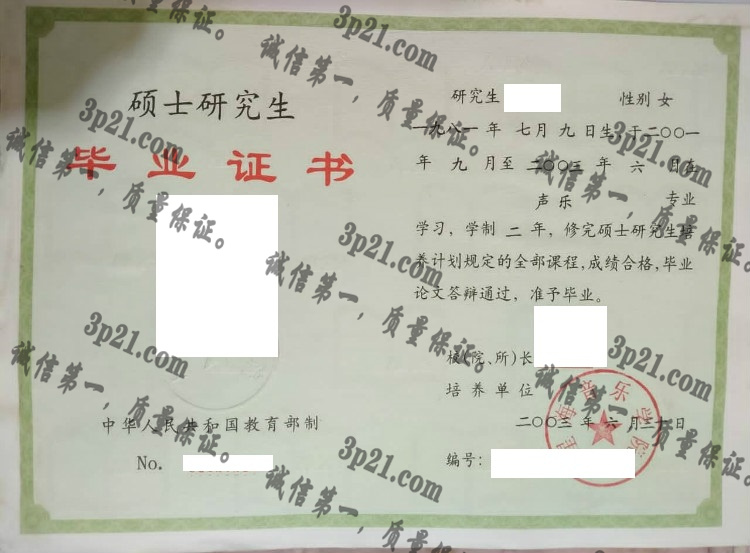 硕士研究生
毕业证书
中华人民共和国教育部制
No.
研究生 性别 女
一九八一 年 七月 九 日生，于二〇〇一
年 九 月至 二〇〇三 年 六 月在
声乐 专业
学习，学制 二 年，修完硕士研究生培
养计划规定的全部课程，成绩合格，毕业
论文答辩通过，准予毕业。
校(院、所)长
培养单位
音乐学院
二〇〇三 年 六 月三十日
编号：
3p21.com
诚信第一，质量保证。
3p21.com
诚信第一，质量保证。
3p21.com
诚信第一，质量保证。
3p21.com
诚信第一，质量保证。
3p21.com
诚信第一，质量保证。
3p21.com
诚信第一，质量保证。
3p21.com
诚信第一，质量保证。